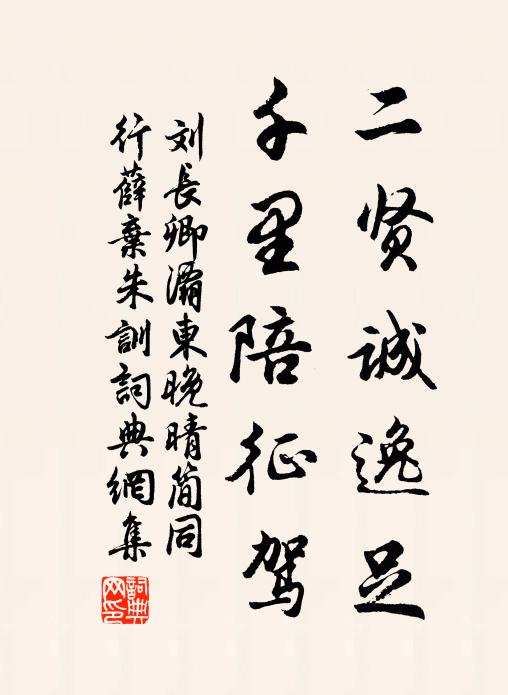 二贤诚逸足
千里陪征驾
刘長卿灞東晚晴简同
行薛棄朱訓詞典網集
詞典網印